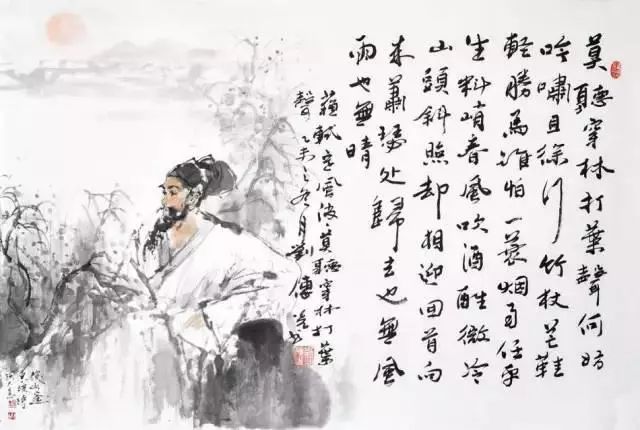 莫聽穿林打葉聲何妨
吟嘯且徐行竹杖芒鞋
輕勝馬誰怕一蓑烟雨任平
生料峭春風吹酒醒微冷
山頭斜照却相迎回首向
来蕭瑟处歸去也無風
雨也無晴
蘇軾定風波莫聽穿林打葉
聲乙未之冬月劉傳書